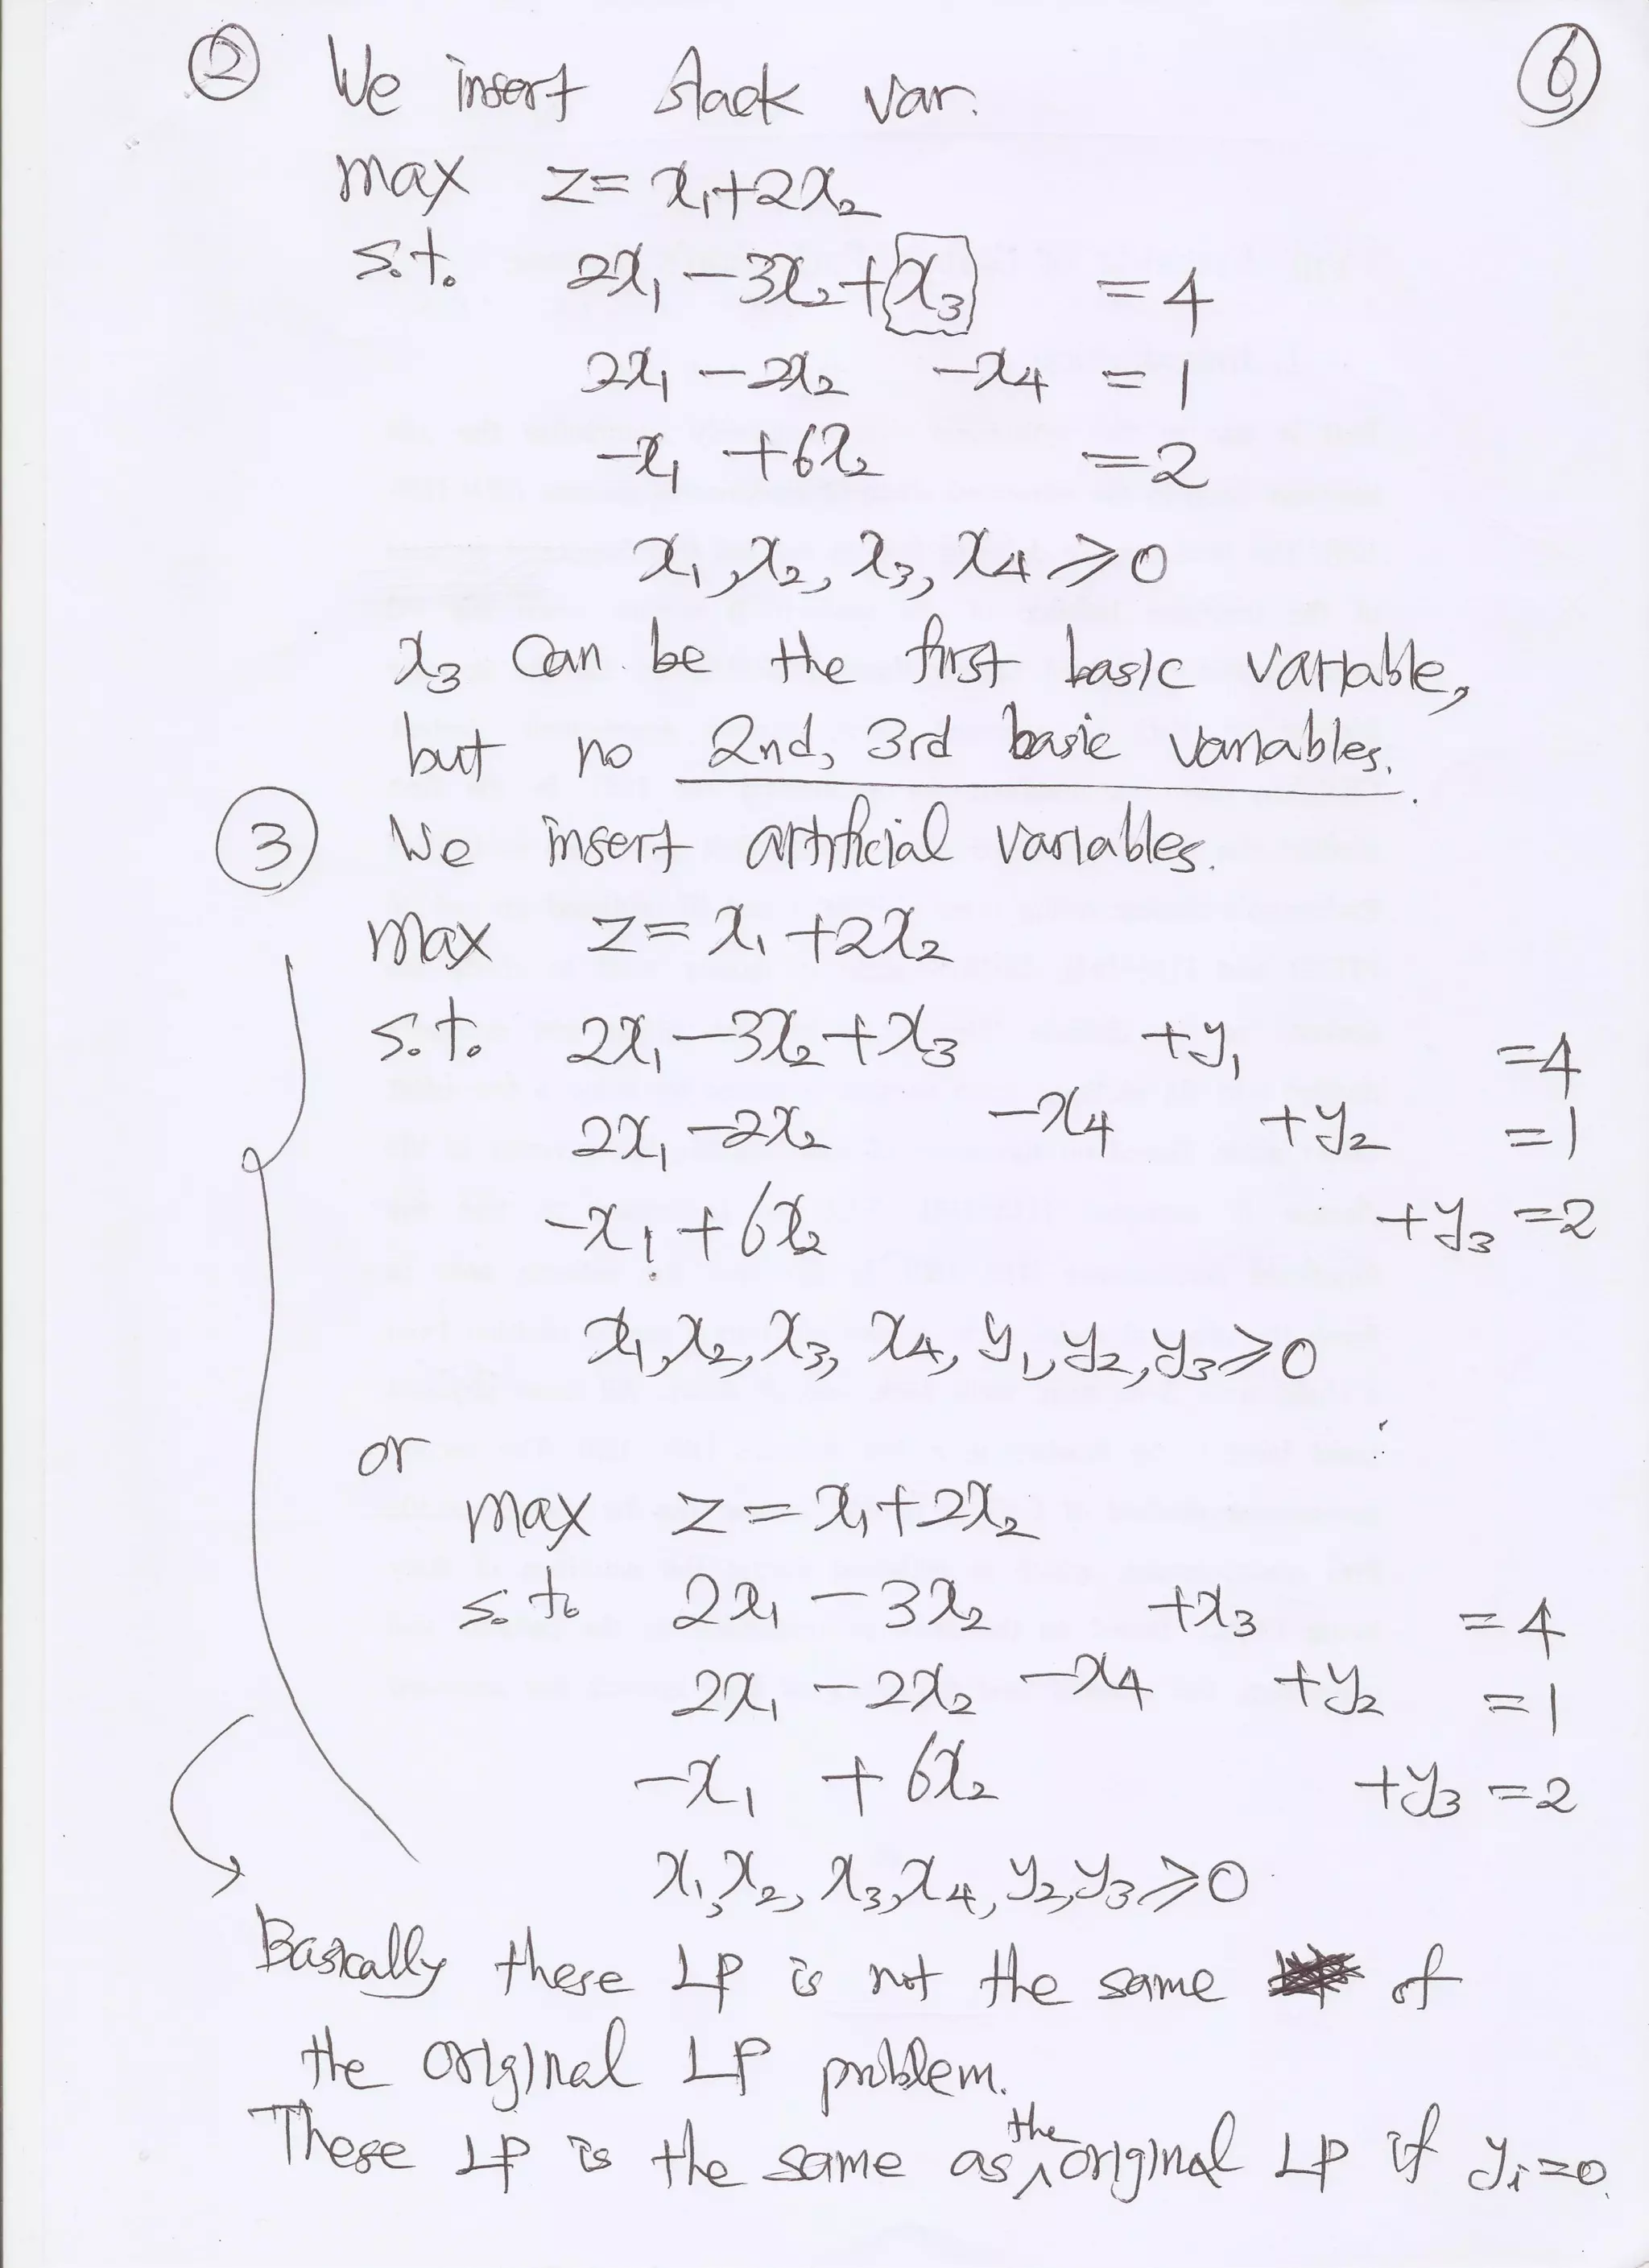 ② We insert slack var. ⑥
max z= x₁+2x₂
s.t. 2x₁ -3x₂+x₃ = 4
2x₁ -2x₂ -x₄ = 1
-x₁ +6x₂ =2
x₁,x₂, x₃, x₄ ⩾0
x₃ can be the first basic variable,
but no 2nd, 3rd basic variables.
③ We insert artificial variables.
max z= x₁ +2x₂
s.t. 2x₁-3x₂+x₃ +y₁ =4
2x₁-2x₂ -x₄ +y₂ =1
-x₁ + 6x₂ +y₃ =2
x₁,x₂,x₃, x₄, y₁,y₂,y₃⩾0
or
max z = x₁+2x₂
s.t. 2x₁ - 3x₂ +x₃ = 4
2x₁ - 2x₂ -x₄ +y₂ = 1
-x₁ + 6x₂ +y₃ =2
x₁,x₂, x₃,x₄, y₂,y₃⩾0
Basically these LP is not the same of
the original LP problem.
These LP is the same as the original LP if yᵢ=0.